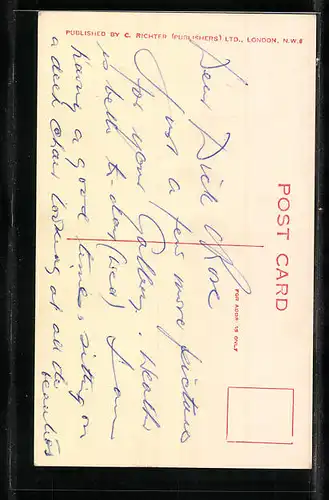 PUBLISHED BY C. RICHTER (PUBLISHERS) LTD., LONDON, N.W.6
POST CARD
FOR ADDRESS ONLY
Dear Dick & Rose
Just a few more pictures
for your Gallery. Weather
is better to-day (Wed) I am
having a good time sitting on
a deck chair looking at all the
beauties